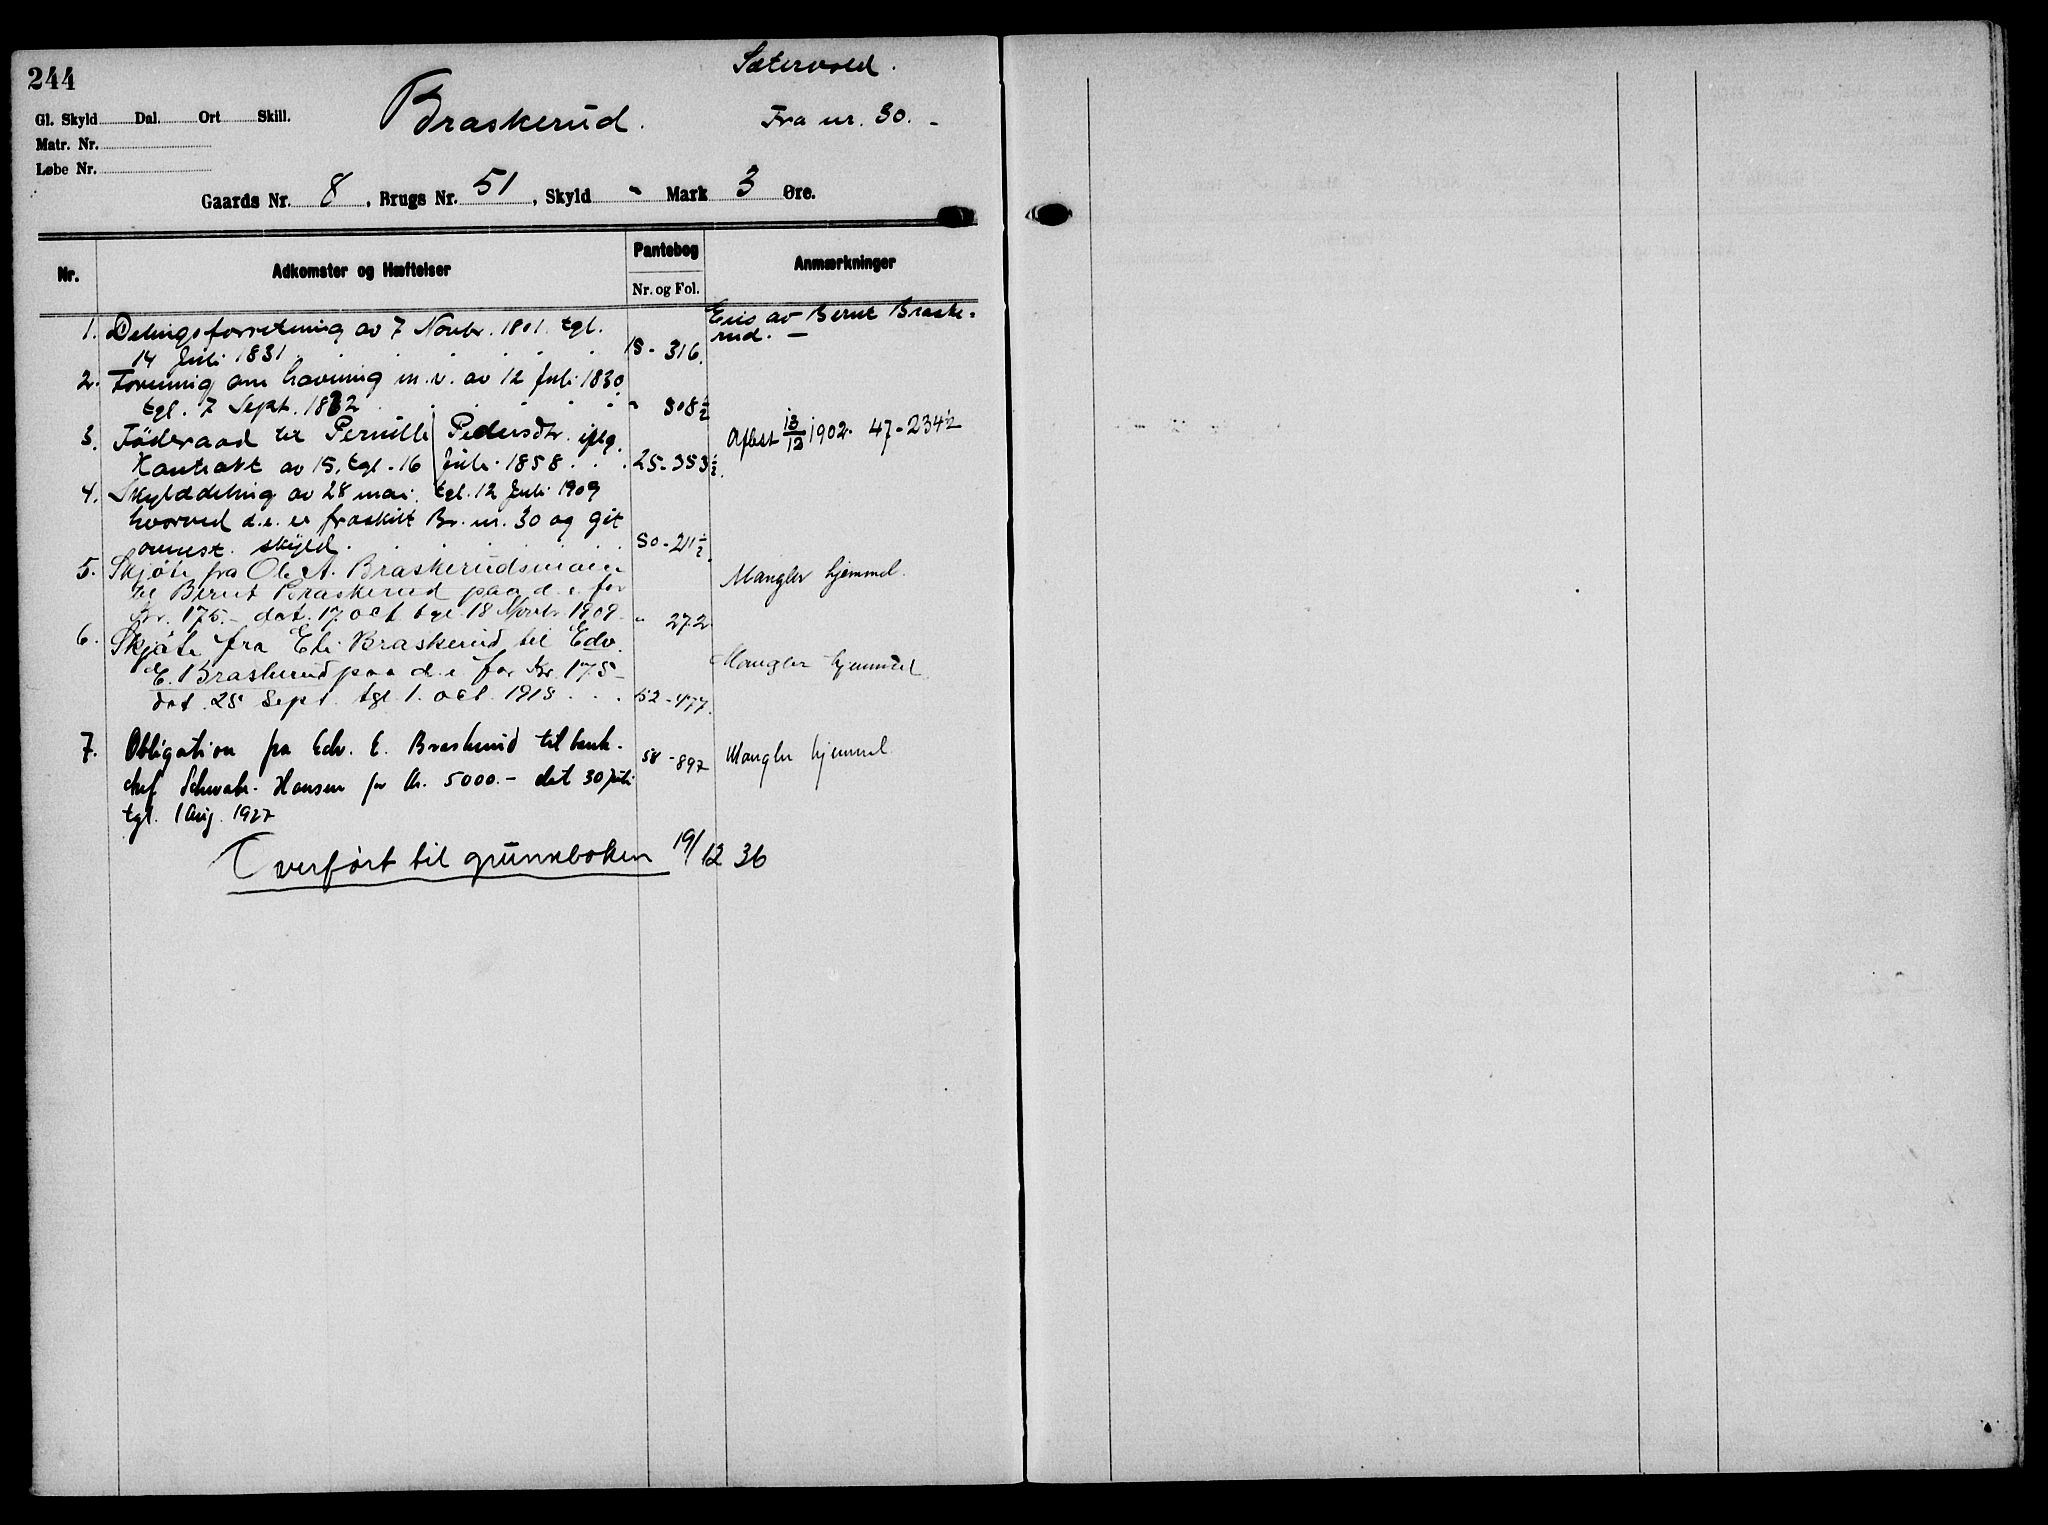 244
Sætervold.
Gl. Skyld Dal. Ort Skill.
Braskerud.
Fra nr. 30. -
Matr. Nr.
Løbe Nr.
Gaards Nr. 8, Brugs Nr. 51, Skyld - Mark 3 Øre.
Nr. Adkomster og Hæftelser Pantebog Anmærkninger
Nr. og Fol.
1. Delingsforretning av 7 Novbr. 1801. tgl. Eies av Bernt Braske-
14 Juli 1831 . . . . . 15 - 316. rud. —
2. Forening om havning m. v. av 12 Juli 1830
tgl. 7 Sept. 1832 . . . . " 308½
3. Föderaad til Pernille Pedersdtr. iflg. Aflest 13/12 1902. 47-234½
Kontrakt av 15, tgl. 16 Juli 1858 . . . 25-353½.
4. Skylddeling av 28 mai, tgl. 12 Juli 1909
hvorved d. e. er fraskilt Br. nr. 30 og git
ovenst. skyld. . . . . . 50-211½.
5. Skjøte fra Ole A. Braskerudsmoen Mangler hjemmel.
til Bernt Braskerud paa d. e. for
Kr. 175.- dat. 17 oct tgl. 18 Novbr. 1909 " 272
6. Skjøte fra Eli Braskerud til Edv.
E. Braskerud paa d. e. for Kr. 175- Mangler hjemmel
dat. 25 Sept. tgl. 1. oct. 1915 . . . 52-477.
7. Obligation fra Edv. E. Braskerud til bank- 58-897 Mangler hjemmel
chef Schwabe-Hansen for kr. 5000.- dat 30 juli
tgl. 1 Aug. 1927
Overført til grunnboken 19/12 36